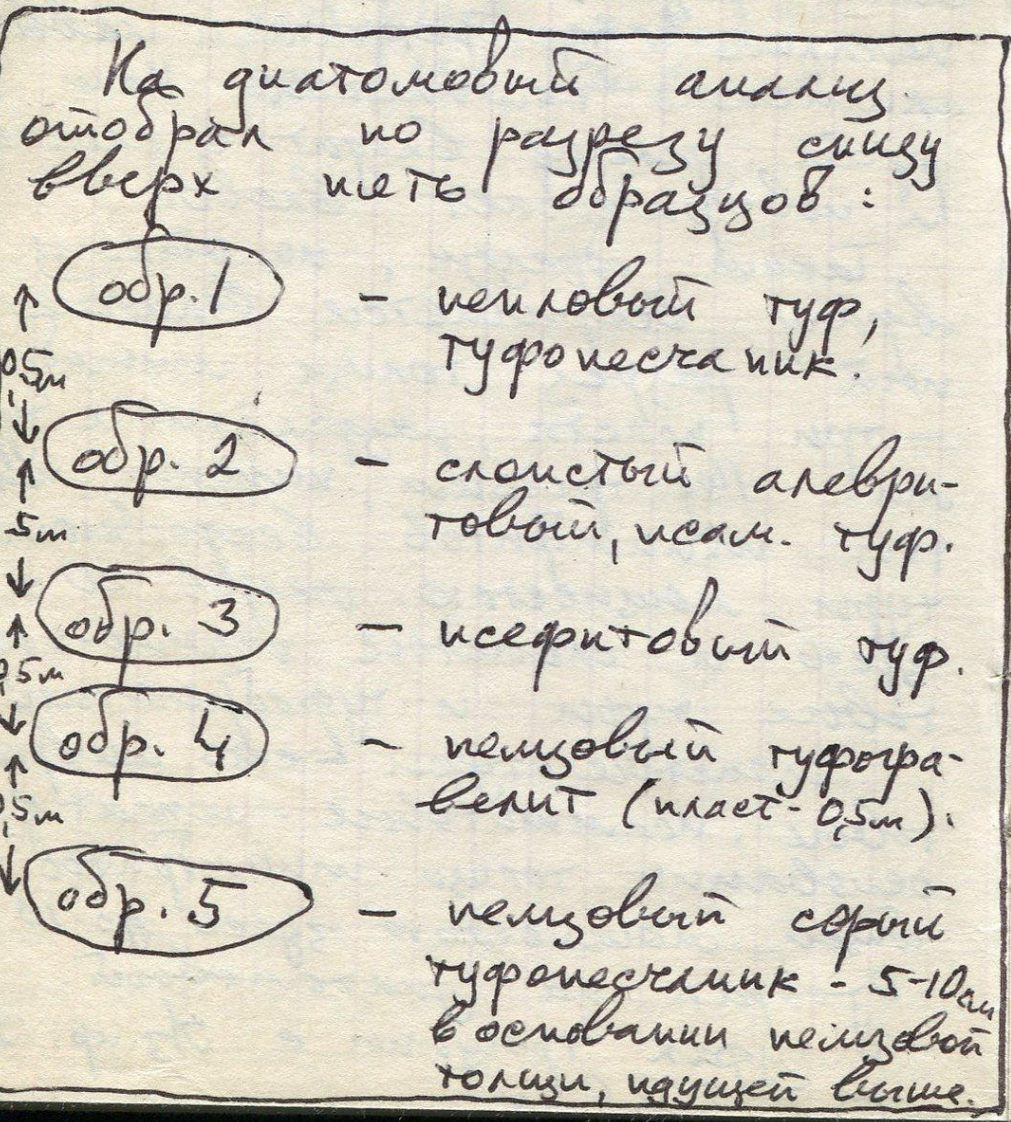 На диатомовый анализ
отобрал по разрезу снизу
вверх пять образцов:
обр. 1 – пепловый туф,
туфопесчаник.
0,5м
обр. 2 – слоистый алеври-
товый, псам. туф.
5м
обр. 3 – псефитовый туф.
0,5м
обр. 4 – пемзовый туфогра-
велит (пласт - 0,5м).
0,5м
обр. 5 – пемзовый серый
туфопесчаник - 5-10см
в основании пемзовой
толщи, идущей выше.